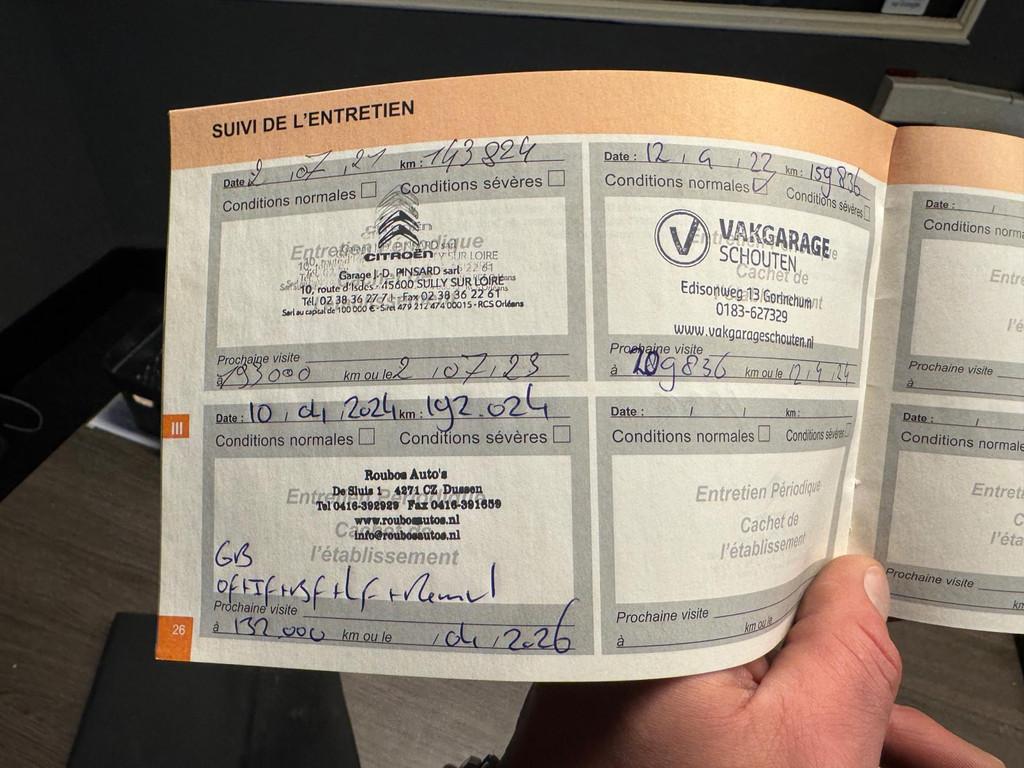 SUIVI DE L'ENTRETIEN
Date : 2 . 07 . 21 km : 143 824
Conditions normales Conditions sévères
Entretien Périodique
CITROËN
Garage J.-D. PINSARD sarl
10, route d'Isdes - 45600 SULLY SUR LOIRE
Tél. 02 38 36 27 7 - Fax 02 38 36 22 61
Sarl au capital de 100 000 € - Siret 479 212 474 00015 - RCS Orléans
Prochaine visite
à 193000 km ou le 2 . 07 . 23
Date : 12 . 4 . 22 km : 159836
Conditions normales Conditions sévères
VAKGARAGE
SCHOUTEN
Cachet de
Edisonweg 13 Gorinchum
0183-627329
www.vakgarageschouten.nl
Prochaine visite
à 209836 km ou le 12 . 4 . 24
III
Date : 10 . 04 . 2024 km : 192.024
Conditions normales Conditions sévères
Roubos Auto's
De Sluis 1 4271 CZ Dussen
Entretien Périodique
Tel 0416-392929 Fax 0416-391659
www.roubosautos.nl
info@roubosautos.nl
Cachet de
l'établissement
GB
OF+IF+BF+LF+Remvl
Prochaine visite
à 132.000 km ou le / 04 / 2026
Date : / / km :
Conditions normales Conditions sévères
Entretien Périodique
Cachet de
l'établissement
Prochaine visite
à km ou le
26
Date : /
Conditions norma
Entre
l'é
Prochaine visite
à
Date : /
Conditions normale
Entret
Ca
l'éta
Prochaine visite
à